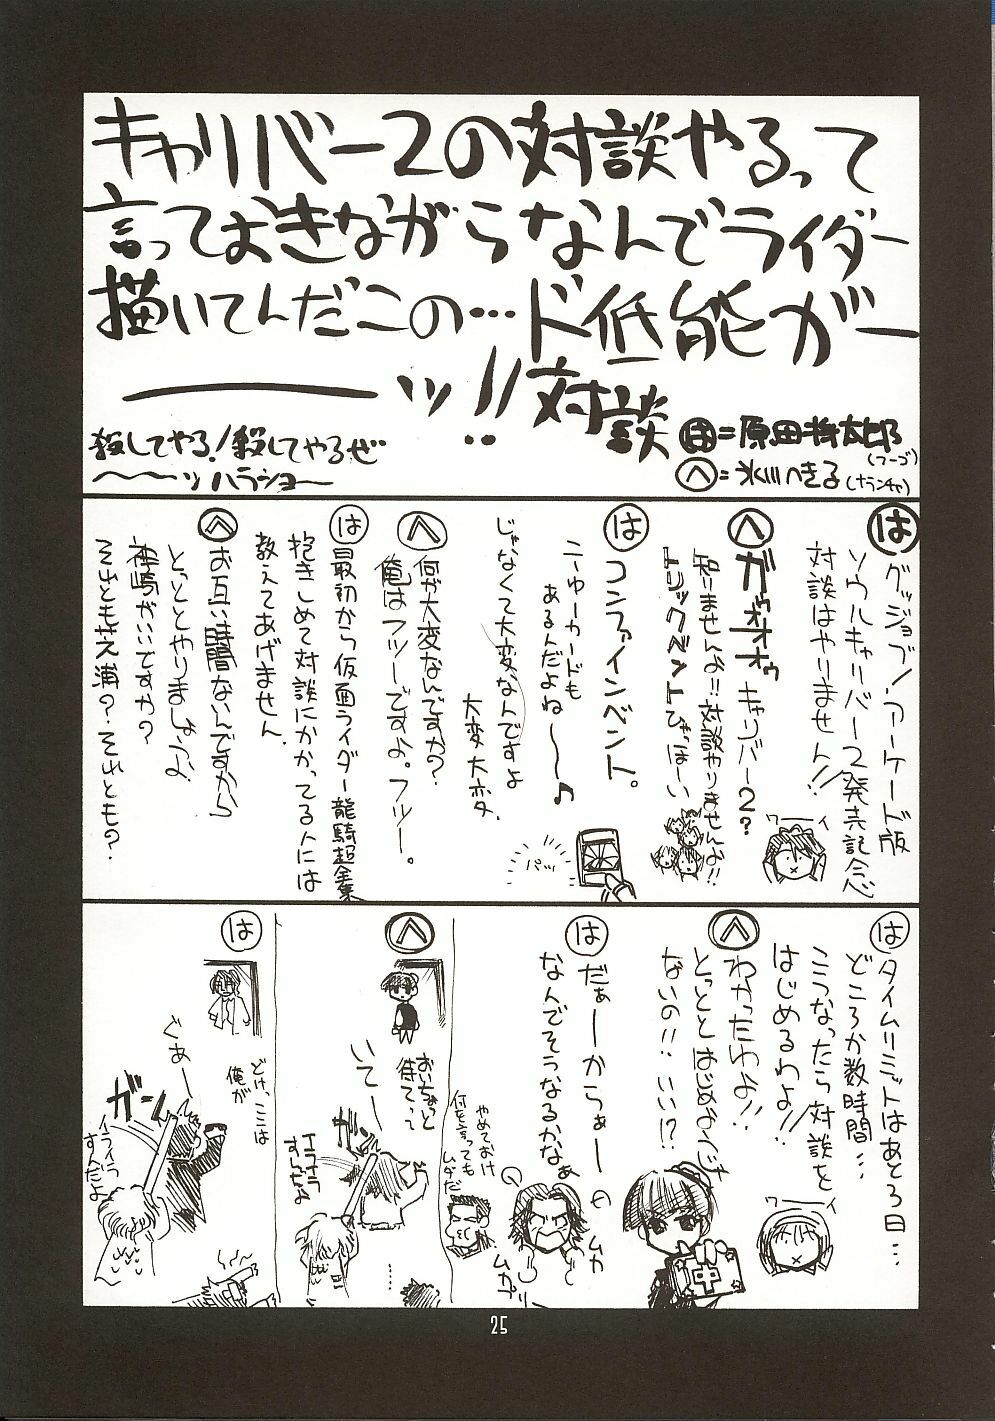 キャリバー2の対談やるって
言っておきながらなんでライダー
描いてんだこの…ド低能がー
――――ッ!!対談
殺してやる!殺してやるぜ
〜〜〜ッハラショー
は=原田将太郎
(フーゴ)
へ=氷川へきる(ナランチャ)
は グッジョブ!アーケード版
ソウルキャリバー2発売記念
対談はやりません!!
ワーイ
へ ガゥォォォゥ キャリバー2?
知りませんよ!!対談やりませんよ!!
トリックベントひゃっほーい
は コンファインベント。
ニゅーカードも
あるんだよね〜〜♪
パッ
じゃなくて大変なんですよ
大変大変。
へ 何が大変なんですか?
俺はフツーですよ。フツー。
は 最初から仮面ライダー龍騎超全集
抱きしめて対談にかかってる人には
教えてあげません。
へ お互い時間ないんですから
とっととやりましょうよ
神崎がいいですか?
それとも芝浦?それとも?
は タイムリミットはあと3日…
どころか数時間…
こうなったら対談を
はじめるわよ!!
ワーイ
へ わかったわよ!!
とっととはじめればいい
ないの!!いい!?
中
は だぁーからぁー
なんでそうなるかなぁ
ムカ
ムカ
やめておけ
何を言っても
ムダだ
へ
おいちょっと
待てって
いてー
ガッ
イライラ
すんだよ
は
どけ、ここは
俺が
ぐぁー
ガッ
イライラ
すんだよ
25